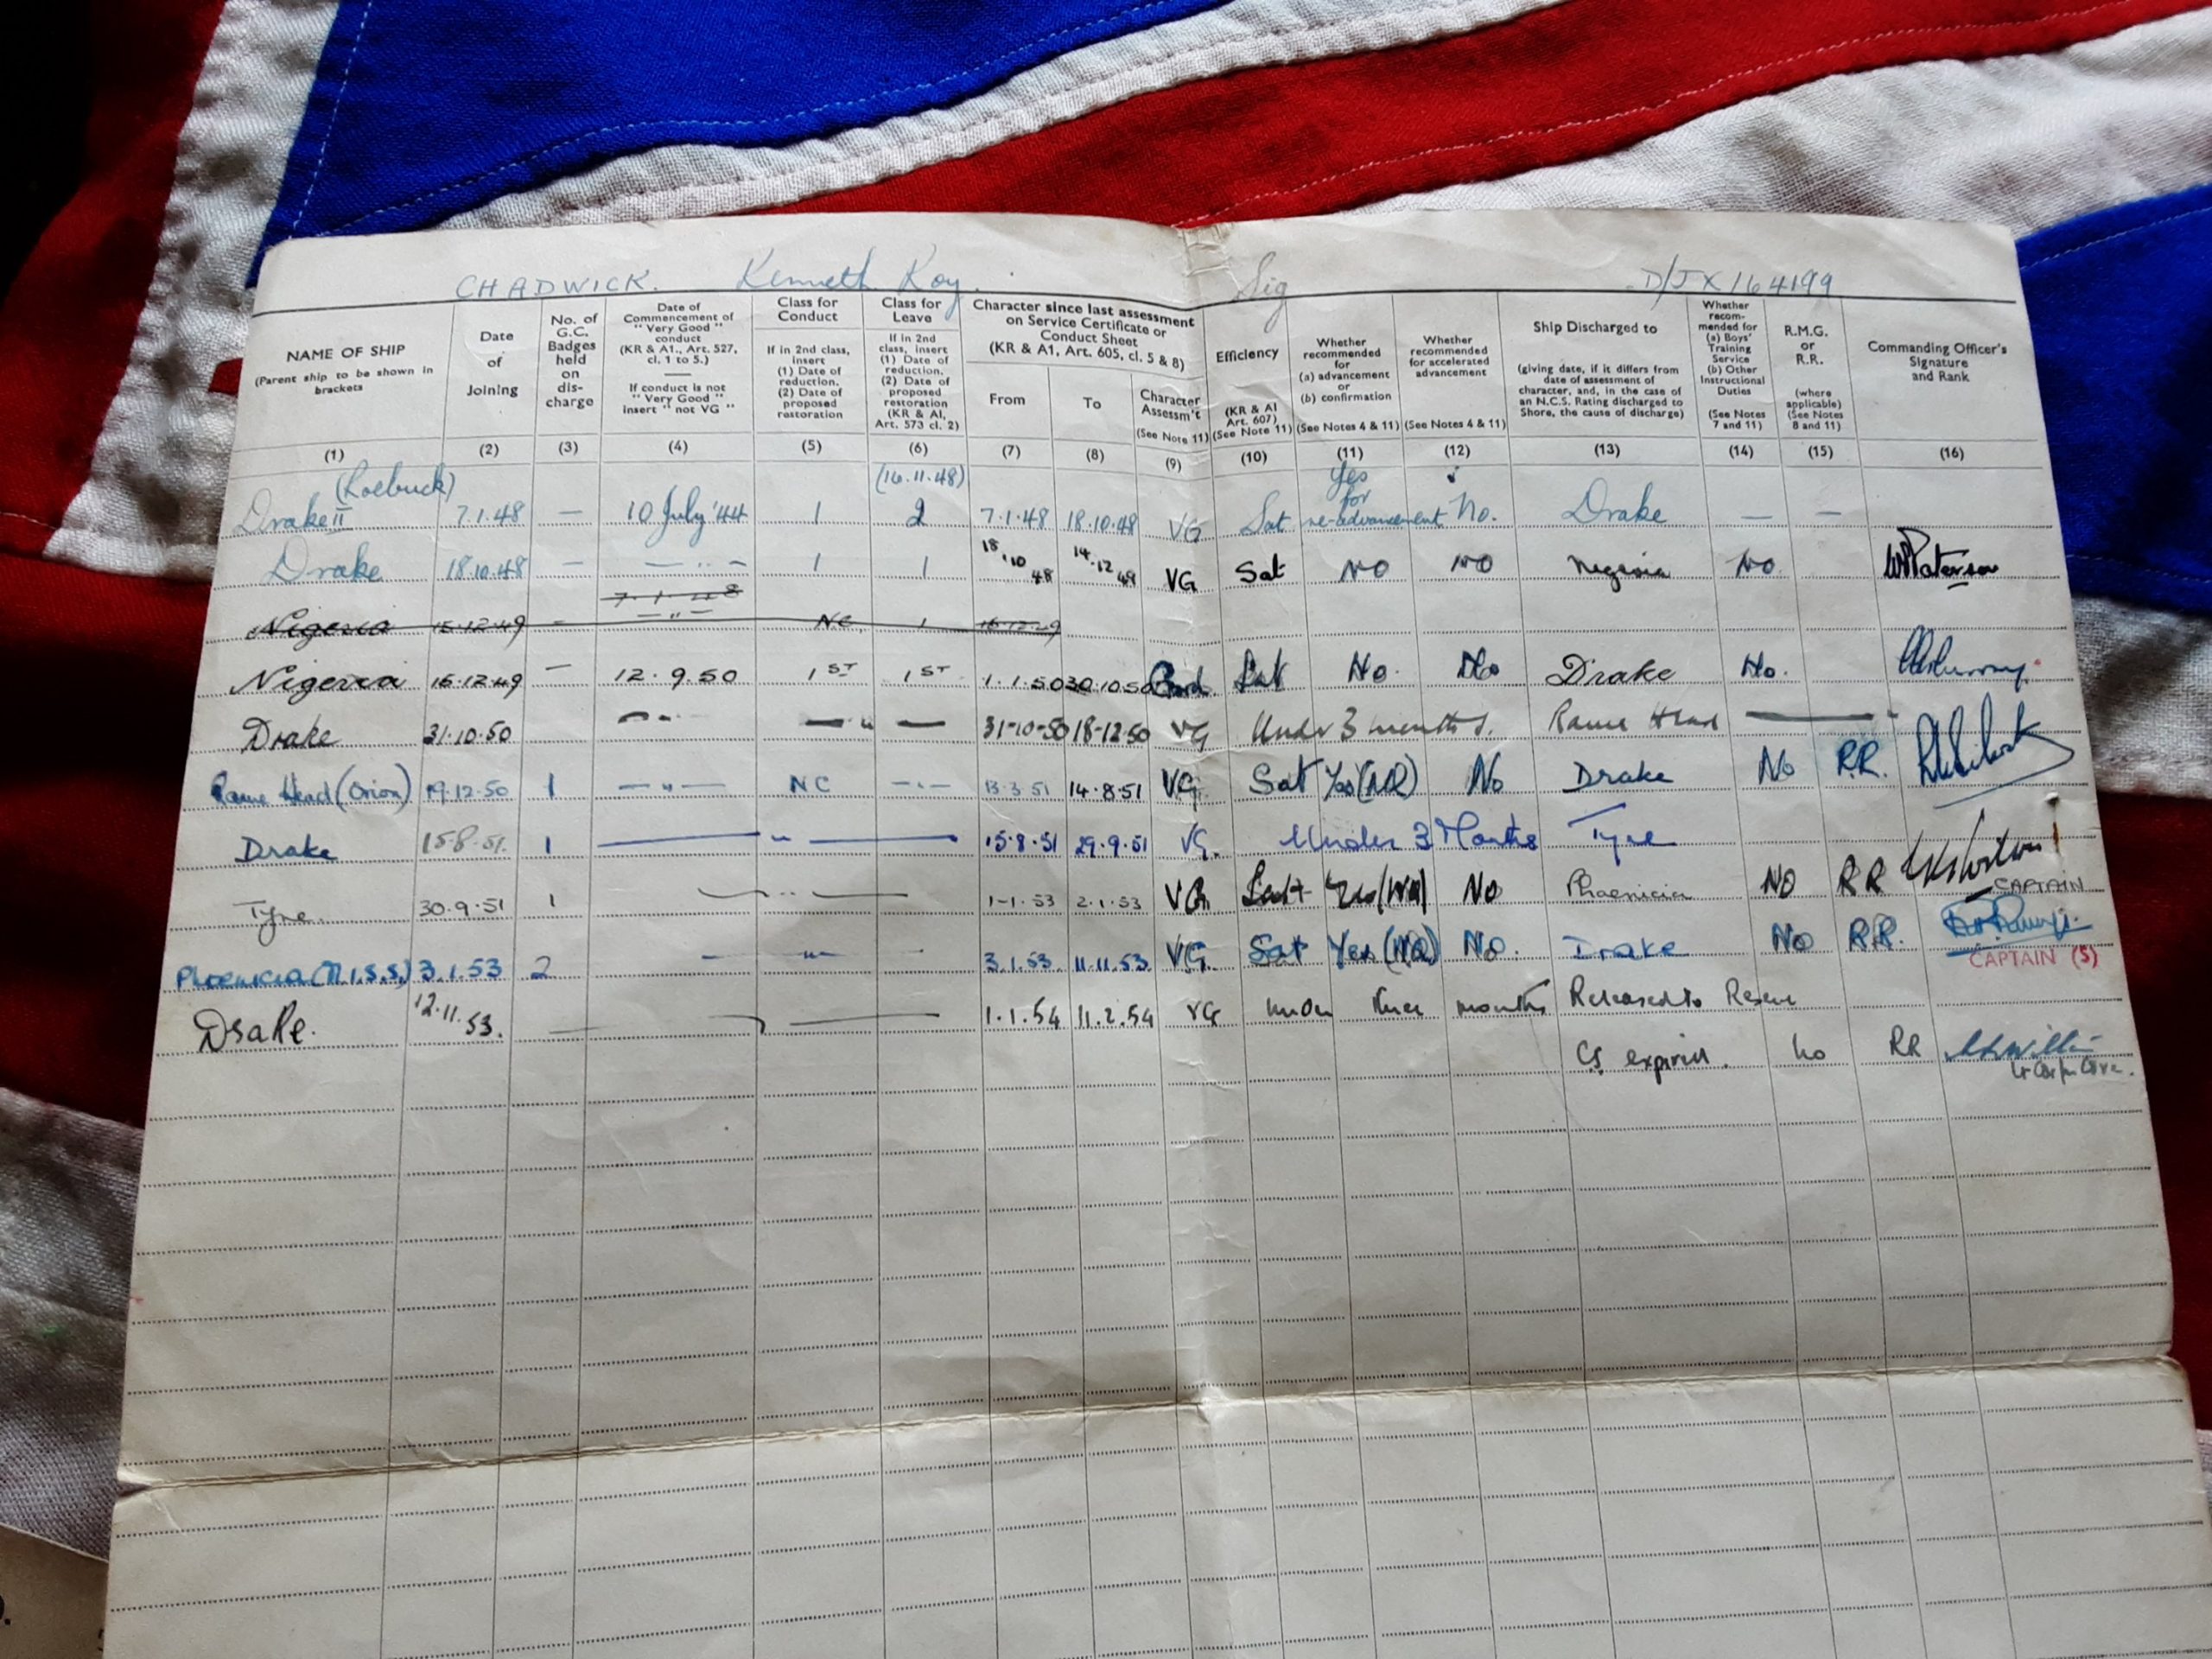 CHADWICK. Kenneth Roy. Sig D/JX 164199
NAME OF SHIP
(Parent ship to be shown in brackets
(1)
Date of Joining
(2)
No. of G.C. Badges held on dis- charge
(3)
Date of Commencement of "Very Good" conduct
(KR & A1., Art. 527, cl. 1 to 5.)
If conduct is not "Very Good" insert "not VG"
(4)
Class for Conduct
If in 2nd class, insert (1) Date of reduction. (2) Date of proposed restoration
(5)
Class for Leave
If in 2nd class, insert (1) Date of reduction. (2) Date of proposed restoration (KR & AI, Art. 573 cl. 2)
(6)
Character since last assessment on Service Certificate or Conduct Sheet
(KR & A1, Art. 605, cl. 5 & 8)
From
(7)
To
(8)
Character Assessm't
(See Note 11)
(9)
Efficiency
(KR & AI Art. 607)
(See Note 11)
(10)
Whether recommended for (a) advancement or (b) confirmation
(See Notes 4 & 11)
(11)
Whether recommended for accelerated advancement
(See Notes 4 & 11)
(12)
Ship Discharged to
(giving date, if it differs from date of assessment of character, and, in the case of an N.C.S. Rating discharged to Shore, the cause of discharge)
(13)
Whether recom- mended for (a) Boys' Training Service (b) Other Instructional Duties
(See Notes 7 and 11)
(14)
R.M.G. or R.R.
(where applicable) (See Notes 8 and 11)
(15)
Commanding Officer's Signature and Rank
(16)
Drake II (Roebuck) 7.1.48 — 10 July '44 1 (16.11.48) 2 7.1.48 18.10.48 VG Sat Yes for re-advancement No. Drake — —
Drake 18.10.48 — — " — 1 1 18.10.48 14.12.49 VG Sat NO NO Nigeria No. W Paterson
7.1.48
Nigeria 15.12.49 — — " — NC 1 16.12.49
Nigeria 16.12.49 — 12.9.50 1ST 1ST 1.1.50 30.10.50 Good Sat No. No Drake No.
Drake 31.10.50 — " — — " — 31-10-50 18-12-50 VG Under 3 months. Rame Head —
Rame Head (Orion) 19.12.50 1 — " — NC — " — 13.3.51 14.8.51 VG Sat Yes (NQ) No Drake No RR.
Drake 15.8.51. 1 — " — 15.8.51 29.9.51 VG. Under 3 Months Tyne
Tyne. 30.9.51 1 — " — 1-1.53 2.1.53 VG Sat Yes (NQ) NO Phoenicia NO RR CAPTAIN
Phoenicia (M.I.S.S.) 3.1.53 2 — " — 3.1.53. 11.11.53. VG. Sat Yes (NQ) No. Drake No RR. CAPTAIN (S)
Drake. 12.11.53. — " — 1.1.54 11.2.54 VG under three months Released to Reserve
CS expired. No RR